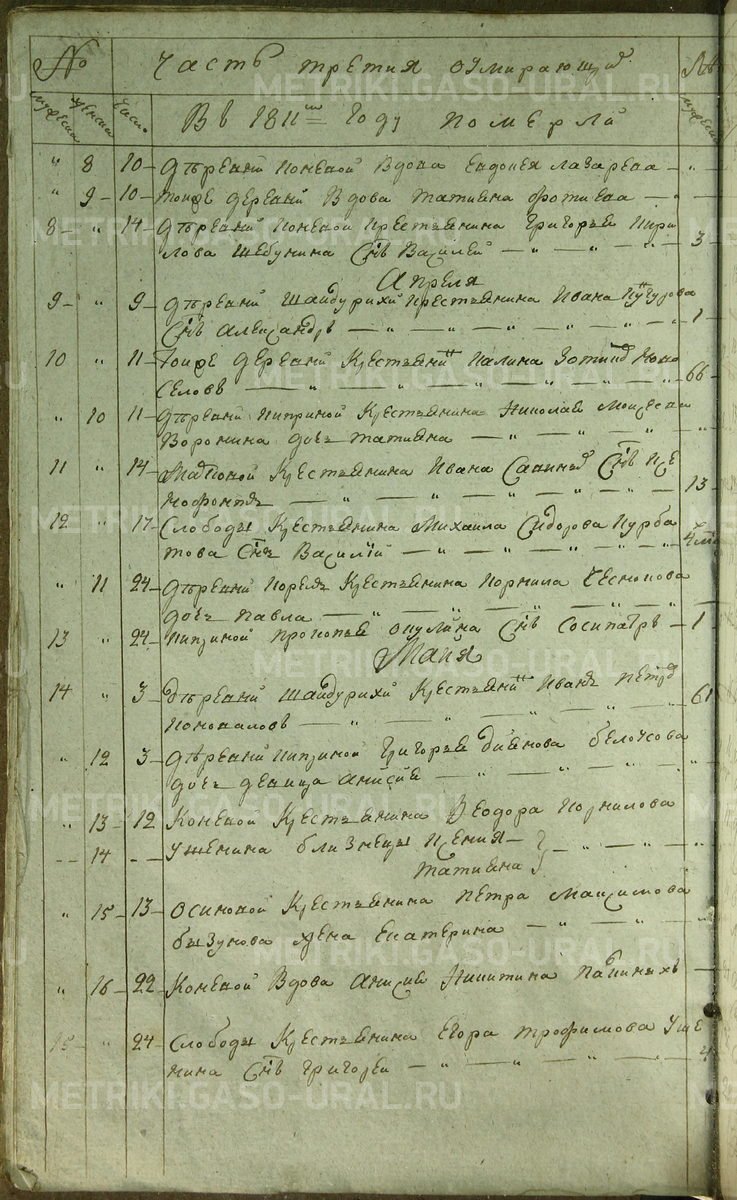 № Часть третия о умирающихъ Лѣ
мужеска женска число мужеска
Въ 1811мъ Году померли
" 8 10 — дѣревни Коневой Вдова Евдокея Лазарева — " —
" 9 — 10 — тоиже деревни Вдова Татияна Фотиева — " —
8 — " 14 — дѣревни Коневой крестьянина Григорья Кири
лова Шебунина Снъ Василей — " — " — " — 3
Апреля
9 — " 9 — дѣревни Шайдурихи крестьянина Ивана
Снъ Александръ — " — " — " — " — 1
10 " 11 — Тоиже деревни Крестьянинъ Калина Зотиевъ Ново
селовъ — " — " — " — " — " — 66
" 10 11 — дѣревни Киприной Крестьянина Николая Моисеева
Воронина дочь Татияна — " — " — " — "
11 " 14 — Крестьянина Ивана Савиныхъ Снъ Ксе
нофонтъ — " — " — " — " — " — 13
12 " 17 — Слободы Крестьянина Михаила Сидорова Курба
това Снъ Василий — " — " — " — " — 4
" 11 24 — дѣревни Крестьянина Корнила Чеснокова
дочь Павла — " — " — " — " —
13 " 24 — Киприной Прокопья Окулина Снъ Сосипатръ — 1
Маия
14 " 3 — дѣревни Шайдурихи Крестьянинъ Иванъ Петровъ
Коноваловъ — " — " — " — " — 61
" 12 3 — дѣревни Киприной Григорья Дианова Белоусова
дочь девица Анисия — " — " — " — "
" 13 — 12 Коневой Крестьянина Ѳеодора Корнилова
— — 14 — — Ушенина близнецы Ксения — } — " — " — "
Татияна }
" 15 — 13 — Осиновой Крестьянина Петра Максимова
бызунова жена Екатерина — " — " — "
" 16 — 22 — Коневой Вдова Анисия Никитина Папиныхъ —
15 " 24 — Слободы Крестьянина Егора Трофимова Уше
нина Снъ Григорей — " — " — " — 4
METRIKI.GASO-URAL.RU